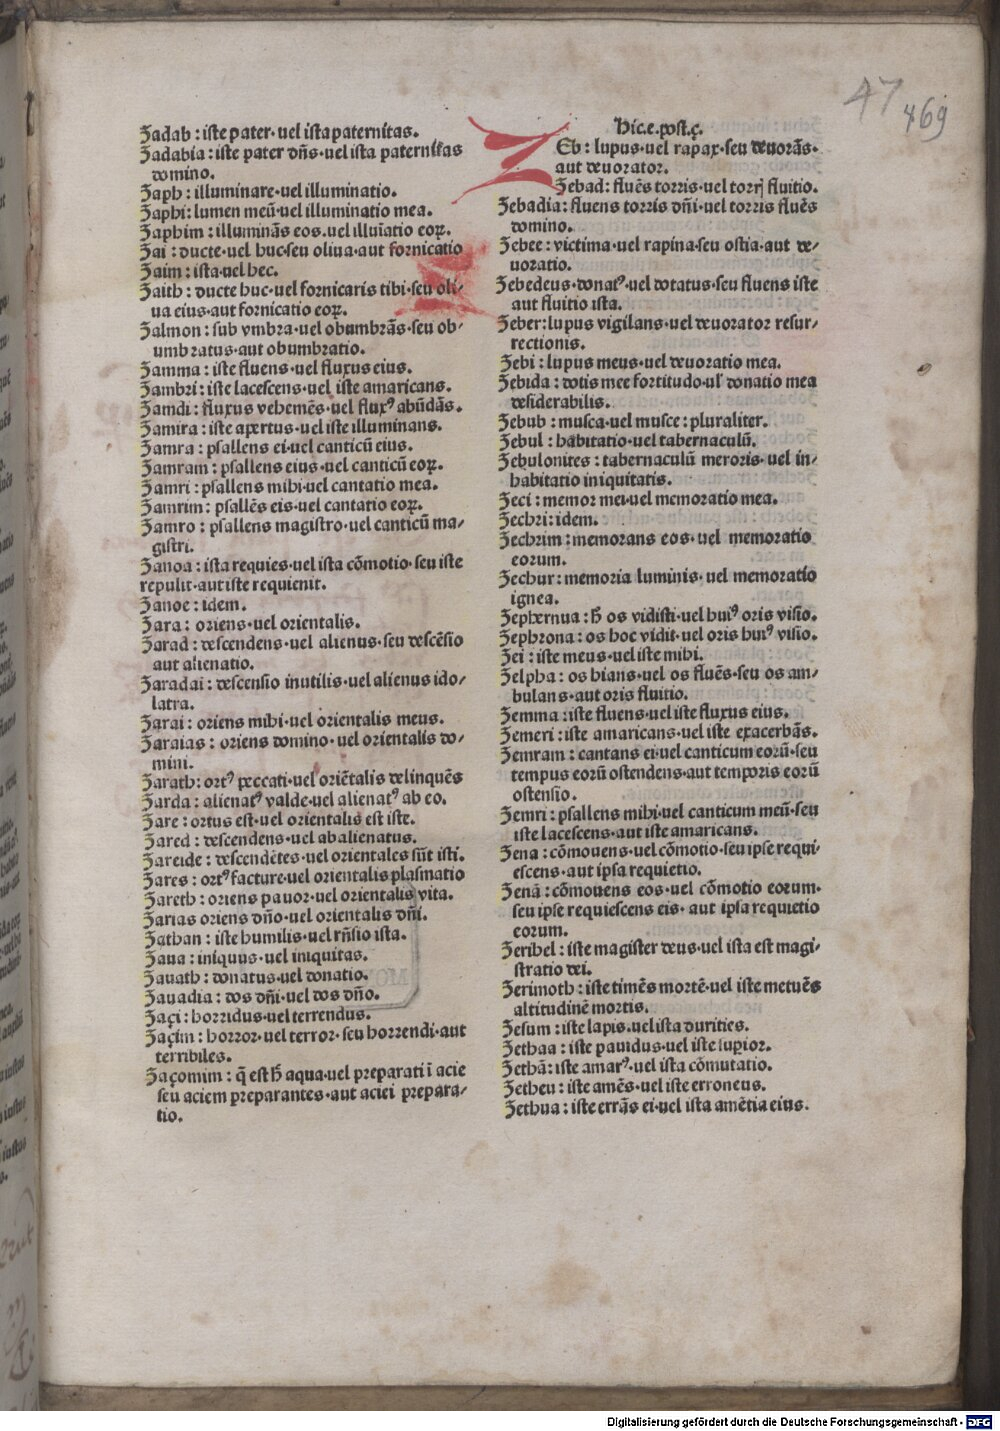 47 469
Zadab : iste pater· uel ista paternitas.
Zadabia : iste pater dñs·uel ista paternitas
domino.
Zaph : illuminare·uel illuminatio.
Zaphi: lumen meũ·uel illuminatio mea.
Zaphim : illuminãs eos·uel illuĩatio eoꝝ.
Zai : ducte·uel huc·seu oliua·aut fornicatio
Zaim : ista·uel hec.
Zaith : ducte huc·uel fornicaris tibi·seu oli-
ua eius·aut fornicatio eoꝝ.
Zalmon : sub vmbra·uel obumbrãs·seu ob-
umbratus·aut obumbratio.
Zamma : iste fluens·uel fluxus eius.
Zambri: iste lacescens·uel iste amaricans.
Zamdi : fluxus vehemẽs·uel fluxꝰ abũdãs.
Zamira : iste apertus·uel iste illuminans.
Zamra : psallens ei·uel canticũ eius.
Zamram : psallens eius·uel canticũ eoꝝ.
Zamri : psallens mihi·uel cantatio mea.
Zamrim : psallẽs eis·uel cantatio eoꝝ.
Zamro : psallens magistro·uel canticũ ma-
gistri.
Zanoa : ista requies·uel ista cõmotio·seu iste
repulit·aut iste requienit.
Zanoe : idem.
Zara : oriens·uel orientalis.
Zarad : descendens·uel alienus·seu descẽsio
aut alienatio.
Zaradai : descensio inutilis·uel alienus ido-
latra.
Zarai : oriens mihi·uel orientalis meus.
Zaraias : oriens domino·uel orientalis do-
mini.
Zarath: ortꝰ peccati·uel oriẽtalis delinquẽs
Zarda : alienatꝰ valde·uel alienatꝰ ab eo.
Zare : ortus est·uel orientalis est iste.
Zared : descendens·uel abalienatus.
Zareide : descendẽtes·uel orientales sũt isti.
Zares : ortꝰ facture·uel orientalis plasmatio
Zareth : oriens pauor·uel orientalis vita.
Zarias oriens dño·uel orientalis dñi.
Zathan : iste humilis·uel rñsio ista.
Zaua : iniquus·uel iniquitas.
Zauath : donatus·uel donatio.
Zauadia : dos dñi·uel dos dño.
Zaçi : horridus·uel terrendus.
Zaçim : horror·uel terror·seu horrendi·aut
terribiles.
Zaçomim : q̃ est ħ aqua·uel preparati ĩ acie
seu aciem preparantes·aut aciei prepara-
tio.
Hic.e.post.ç.
ZEb : lupus·uel rapax·seu deuorãs·
aut deuorator.
Zebad: fluẽs torris·uel torrꝭ fluitio.
Zebadia: fluens torris dñi·uel torris fluẽs
domino.
Zebee : victima·uel rapina·seu ostia·aut de-
uoratio.
Zebedeus·donatꝰ·uel dotatus·seu fluens iste
aut fluitio ista.
Zeber:lupus vigilans·uel deuorator resur-
rectionis.
Zebi : lupus meus·uel deuoratio mea.
Zebida : dotis mee fortitudo·ul' donatio mea
desiderabilis.
Zebub : musca·uel musce : pluraliter.
Zebul : habitatio·uel tabernaculũ.
Zebulonites : tabernaculũ meroris·uel in-
habitatio iniquitatis.
Zeci : memor mei·uel memoratio mea.
Zechri: idem.
Zechrim : memorans eos·uel memoratio
eorum.
Zechur : memoria luminis·uel memoratio
ignea.
Zephernua : ħ os vidisti·uel huiꝰ oris visio.
Zephrona : os hoc vidit·uel oris huiꝰ visio.
Zei : iste meus·uel iste mihi.
Zelpha : os hians·uel os fluẽs·seu os am-
bulans·aut oris fluitio.
Zemma : iste fluens·uel iste fluxus eius.
Zemeri : iste amaricans·uel iste exacerbãs.
Zemram : cantans ei·uel canticum eorũ·seu
tempus eorũ ostendens·aut temporis eorũ
ostensio.
Zemri : psallens mihi·uel canticum meũ·seu
iste lacescens·aut iste amaricans.
Zena : cõmouens·uel cõmotio·seu ipse requi-
escens·aut ipsa requietio.
Zenã : cõmouens eos·uel cõmotio eorum·
seu ipse requiescens eis·aut ipsa requietio
eorum.
Zeribel : iste magister deus·uel ista est magi-
stratio dei.
Zerimoth : iste timẽs mortẽ·uel iste metuẽs
altitudinẽ mortis.
Zesum : iste lapis·uel ista durities.
Zethaa : iste pauidus·uel iste supior.
Zethã: iste amarꝰ·uel ista cõmutatio.
Zetheu : iste amẽs·uel iste erroneus.
Zethua : iste errãs ei·uel ista amẽtia eius.
Digitalisierung gefördert durch die Deutsche Forschungsgemeinschaft - DFG